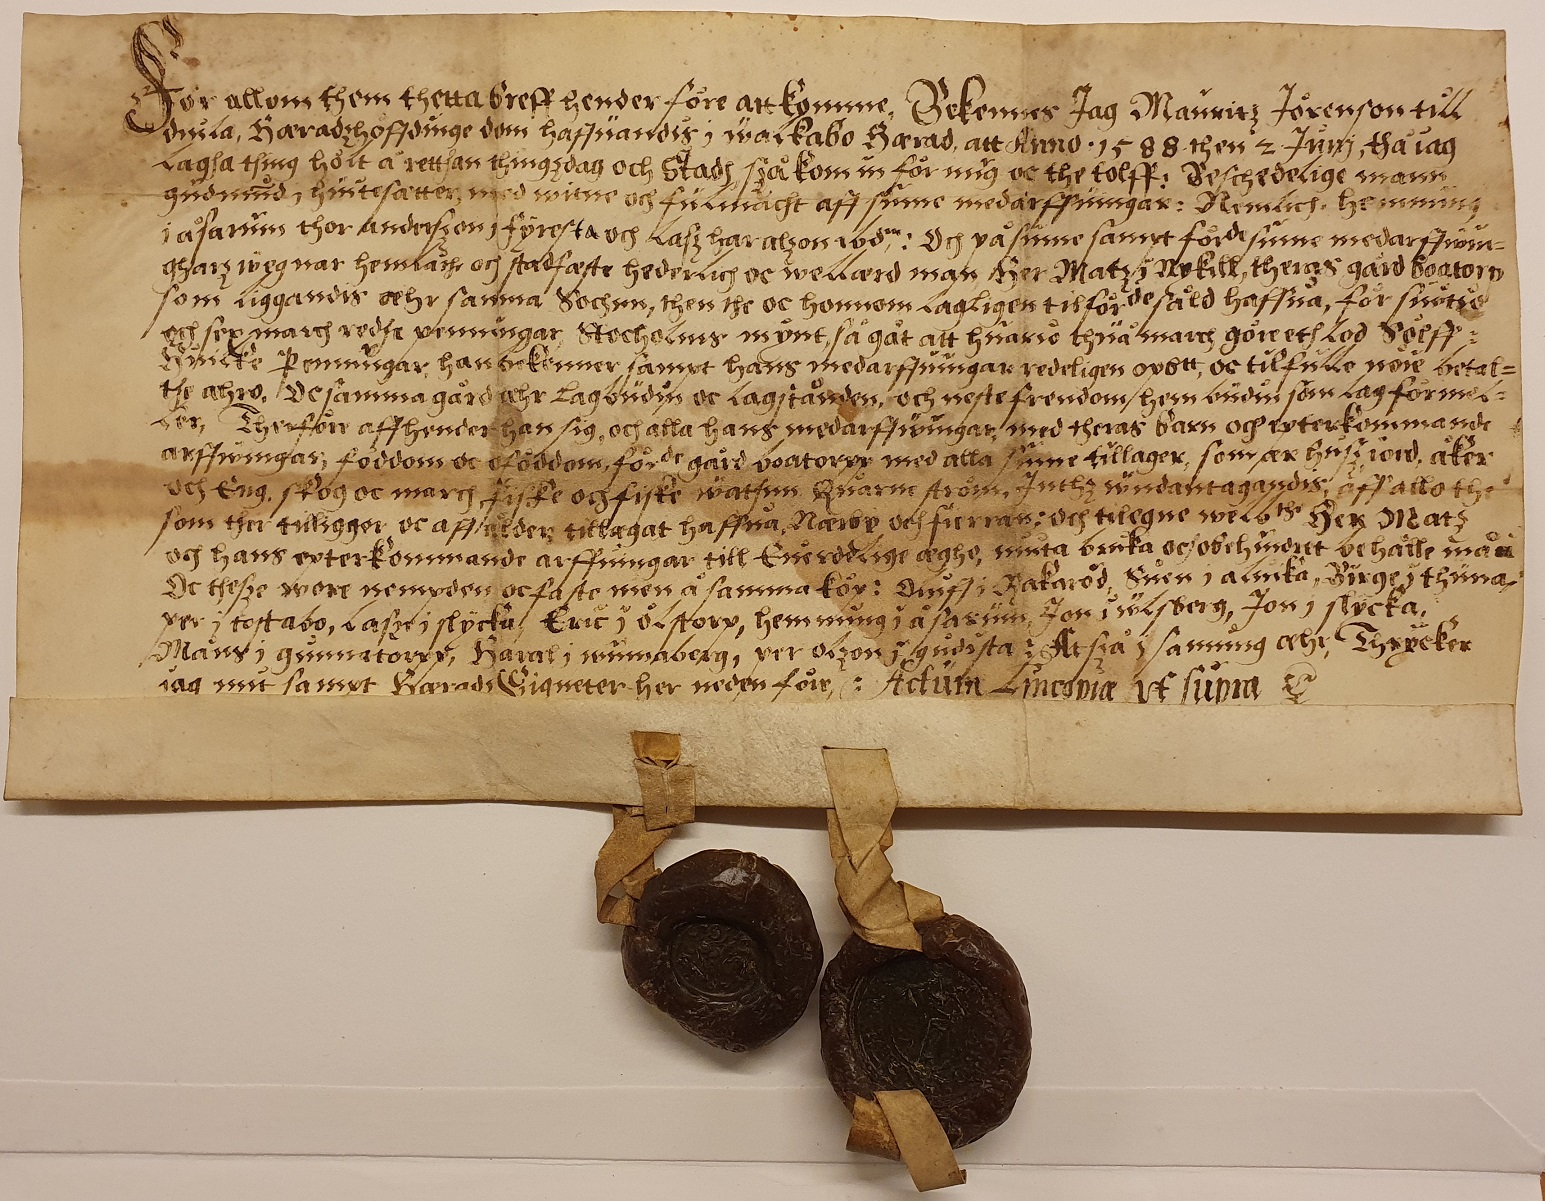 För allom them thetta breff hender före att komme, Bekennes Jag Mauritz Jörenson till
diula, Häradzhöffdinge dom haffuandis j walkabo Härad, att Anno 1588 then 2 Junij, thå iag
Lagha thing hölt å rettan thingzdag och Stadz, szå kom in för mig oc the tolff: Beschedelige mann
gudmund j hiutesätter, med witne och fulmacht aff sinne medarffuingar: Nemlich hemming
i åsarum thor anderszon j fyresta och Lasz haralzon : Och på sinne sampt förde sinne medarffwin=
gharz wegnar hemlade och stadfäste hederlich oc wellärd man Her Matz j Nykill, theras gård boatorp
som Liggandis ähr samma Sochnn, then the oc honnom Lagligen tilförde såld haffua, för siutio
och sex march redhe penningar, Stocholms mynt, så gåt att huario thuå march göre eth Lod Sölff:
Huilke Penningar, han bekenner sampt hans medarffuingar redeligen opött, oc till fulle nöie betal=
the ähre. Oc samma gård ähr Lagbudin oc Lagstånden, och neste frendom hembudin som Lag förmel=
ler, Therföre affhender han sig, och alla hans medarffwingar, med theras barn och epterkommande
arffwingar, föddom oc oföddom, förde gård boatorpp med alla sinne tillager, som är husz iord, åker
och Eng, skog oc march fiske och fiske watnn Quarne ström, Inthz undantagandis, aff allo the
som ther tilligger oc aff ålder tillegat haffua, Närby och fierran: och tilegne Her Matz
och hans epterkommande arffuingar till Euerdelige äghe, niuta bruka oc obehindret behålle må
Oc thesze wore nempden oc faste men å samma köp: Oluff j Bakaröd, Suen j alnika, Birge j thuna,
per j tostabo, Lasze j slycka, Eric j ölstorp, hemming j åsarum, Jon j ulsberg, Jon j slycka,
Måns j gunnetorpp, Haral j wunnaberg, per olzon j gudista: At szå j sanning ähr, Thrycker
iag mit sampt Häradz Signeter her neden före,: Actum Lincopiæ ut supra